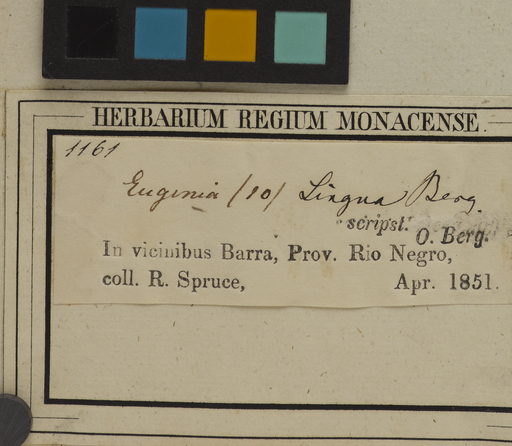 HERBARIUM REGIUM MONACENSE.
1161
Eugenia (10) Lingua Berg.
scripsit
O. Berg.
In vicinibus Barra, Prov. Rio Negro,
coll. R. Spruce, Apr. 1851.